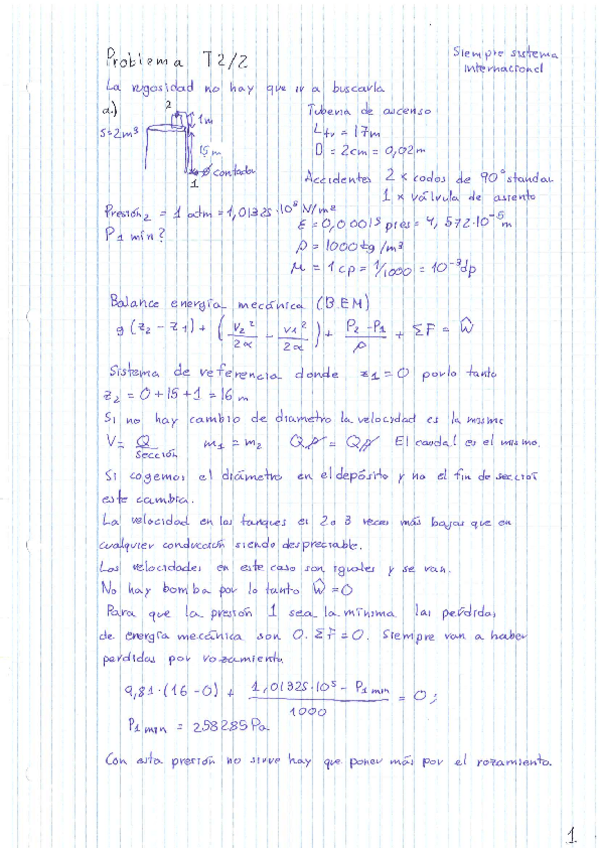 Problema T2/2
Siempre sistema
internacional
La rugosidad no hay que ir a buscarla
a.)
2
1m
S=2m³
15m
contada
1
Tubería de ascenso
Ltr = 17m
D = 2cm = 0,02m
Accidentes 2 x codos de 90° standar
1 x válvula de asiento
Presión₂ = 1 atm = 1,01325·10⁵ N/m²
ε = 0,00015 pies = 4,572·10⁻⁵ m
P1 min?
ρ = 1000 kg/m³
μ = 1 cp = 1/1000 = 10⁻³ dp
Balance energía mecánica (BEM)
g (z₂ - z₁) + (v₂²/2α - v₁²/2α) + P₂-P₁/ρ + ΣF = Ŵ
Sistema de referencia donde z₁=0 por lo tanto
z₂ = 0+15+1 = 16 m
Si no hay cambio de diametro la velocidad es la misma
V = Q/sección m₁ = m₂ Qρ = Qρ El caudal es el mismo.
Si cogemos el diámetro en el depósito y no el fin de sección
este cambia.
La velocidad en los tanques es 2 o 3 veces más bajas que en
cualquier conducción siendo despreciable.
Las velocidades en este caso son iguales y se van.
No hay bomba por lo tanto Ŵ=0
Para que la presión 1 sea la mínima las perdidas
de energía mecánica son 0. ΣF=0. Siempre van a haber
perdidas por rozamiento
9,81·(16-0) + 1,01325·10⁵ - P1 min/1000 = 0;
P1 min = 258285 Pa
Con esta presión no sirve hay que poner más por el rozamiento.
1